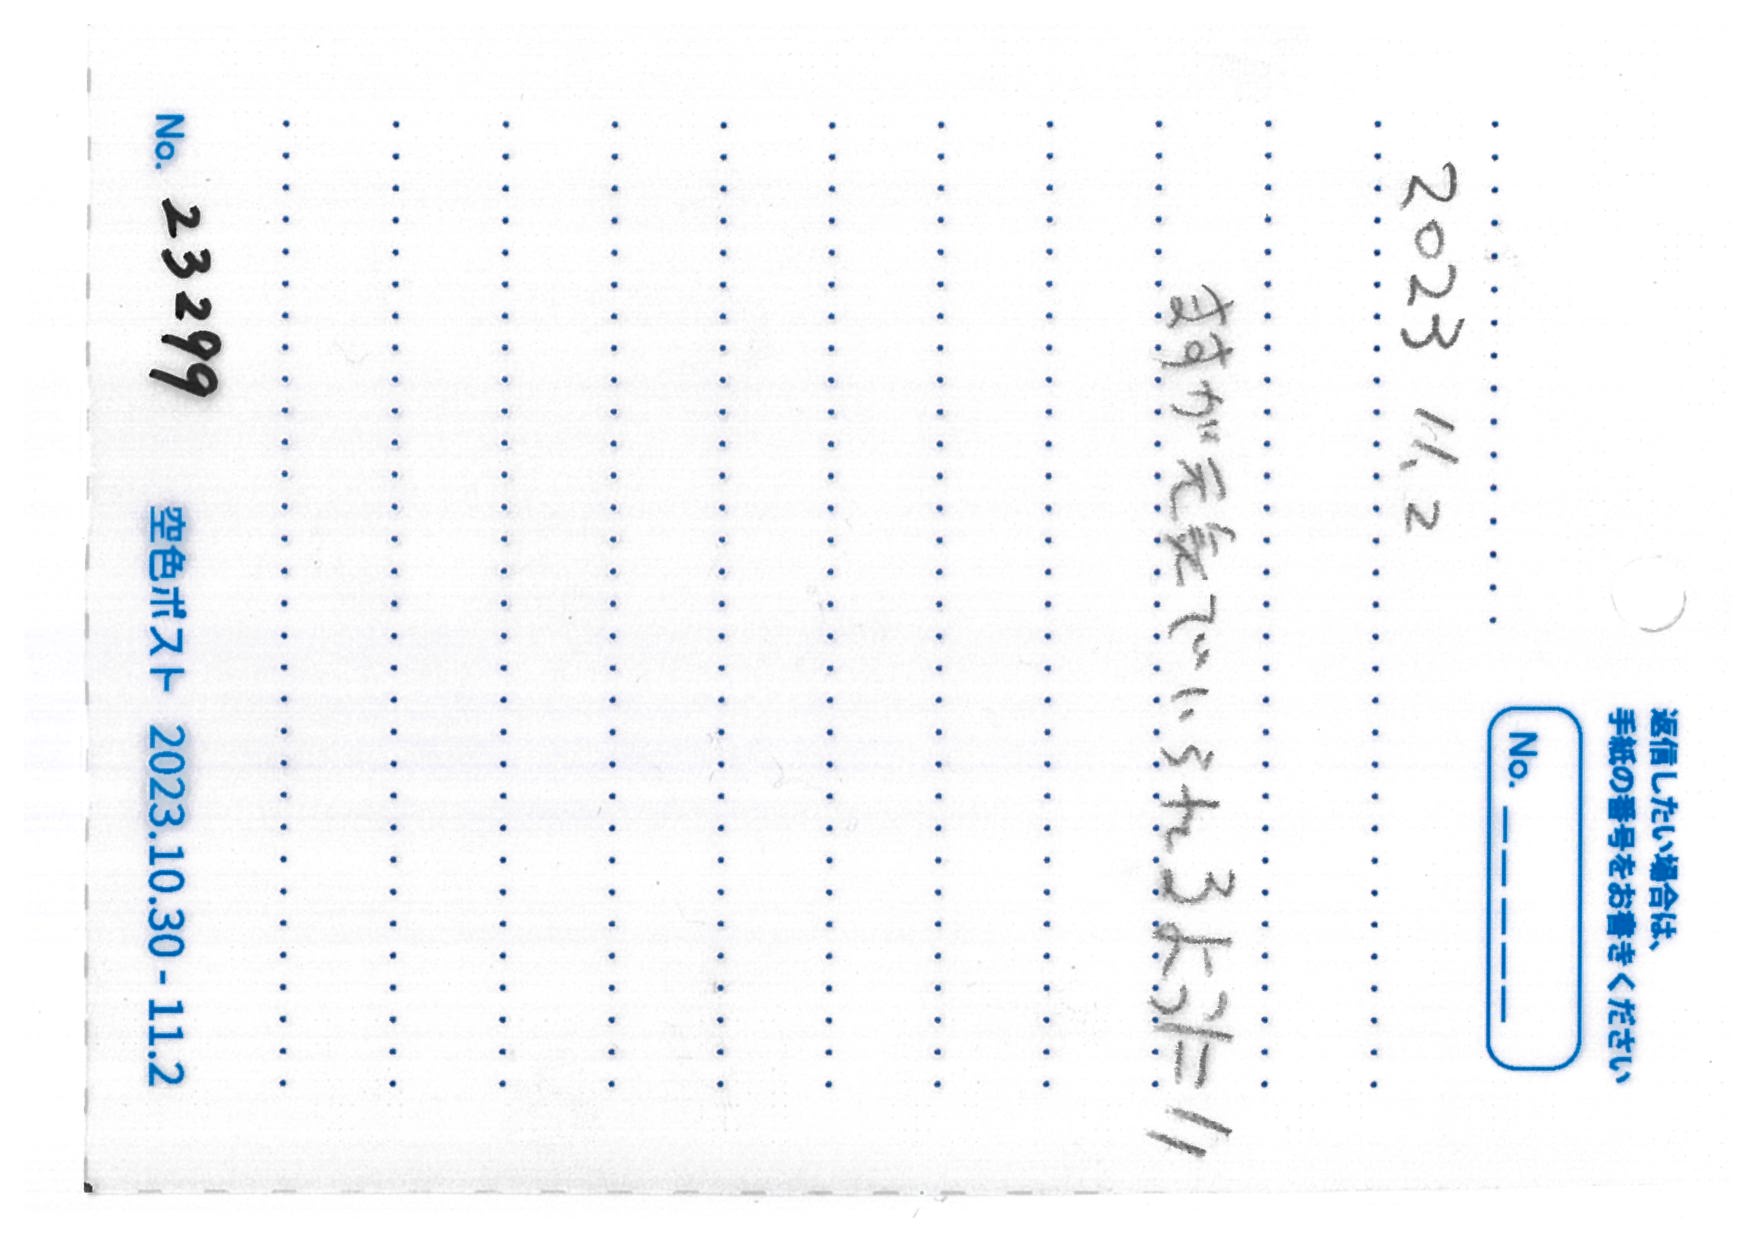 返信したい場合は、
手紙の番号をお書きください
No. _ _ _ _ _
2023 11.2
ますが元気でいられるように!!
No. 23299
空色ポスト 2023.10.30 - 11.2